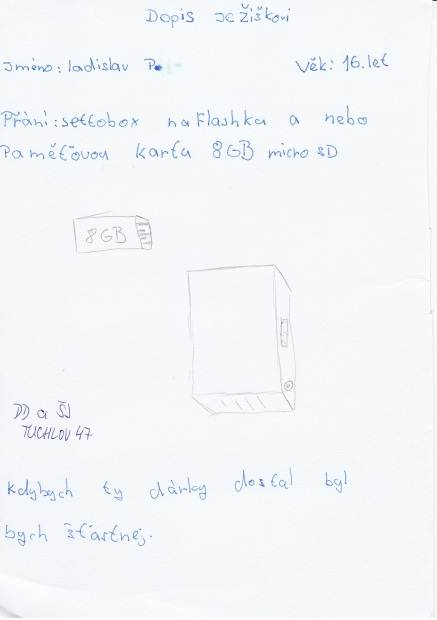 Dopis ježiškovi
jméno: ladislav P.
Věk: 16.let
Přání: settobox na Flashku a nebo
Paměťovou kartu 8GB micro SD
8GB
DD a ŠJ
TUCHLOV 47
Kdybych ty dárky dostal byl
bych šťastnej.